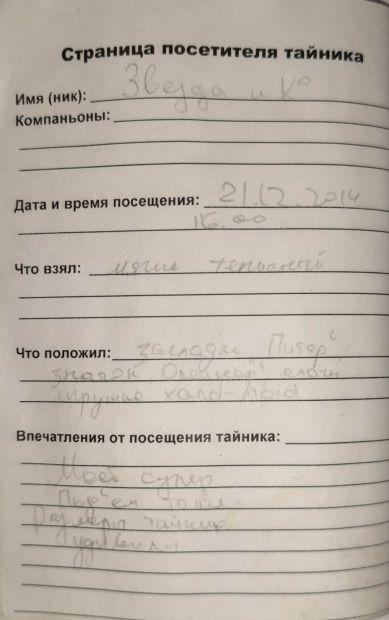 Страница посетителя тайника
Имя (ник): Звезда и К°
Компаньоны:
Дата и время посещения: 21.12.2014
16.00
Что взял: мячик теннисный
Что положил: закладки "Питер"
значок
Впечатления от посещения тайника:
Место супер
Подъем тоже
Размеры тайника
удивили